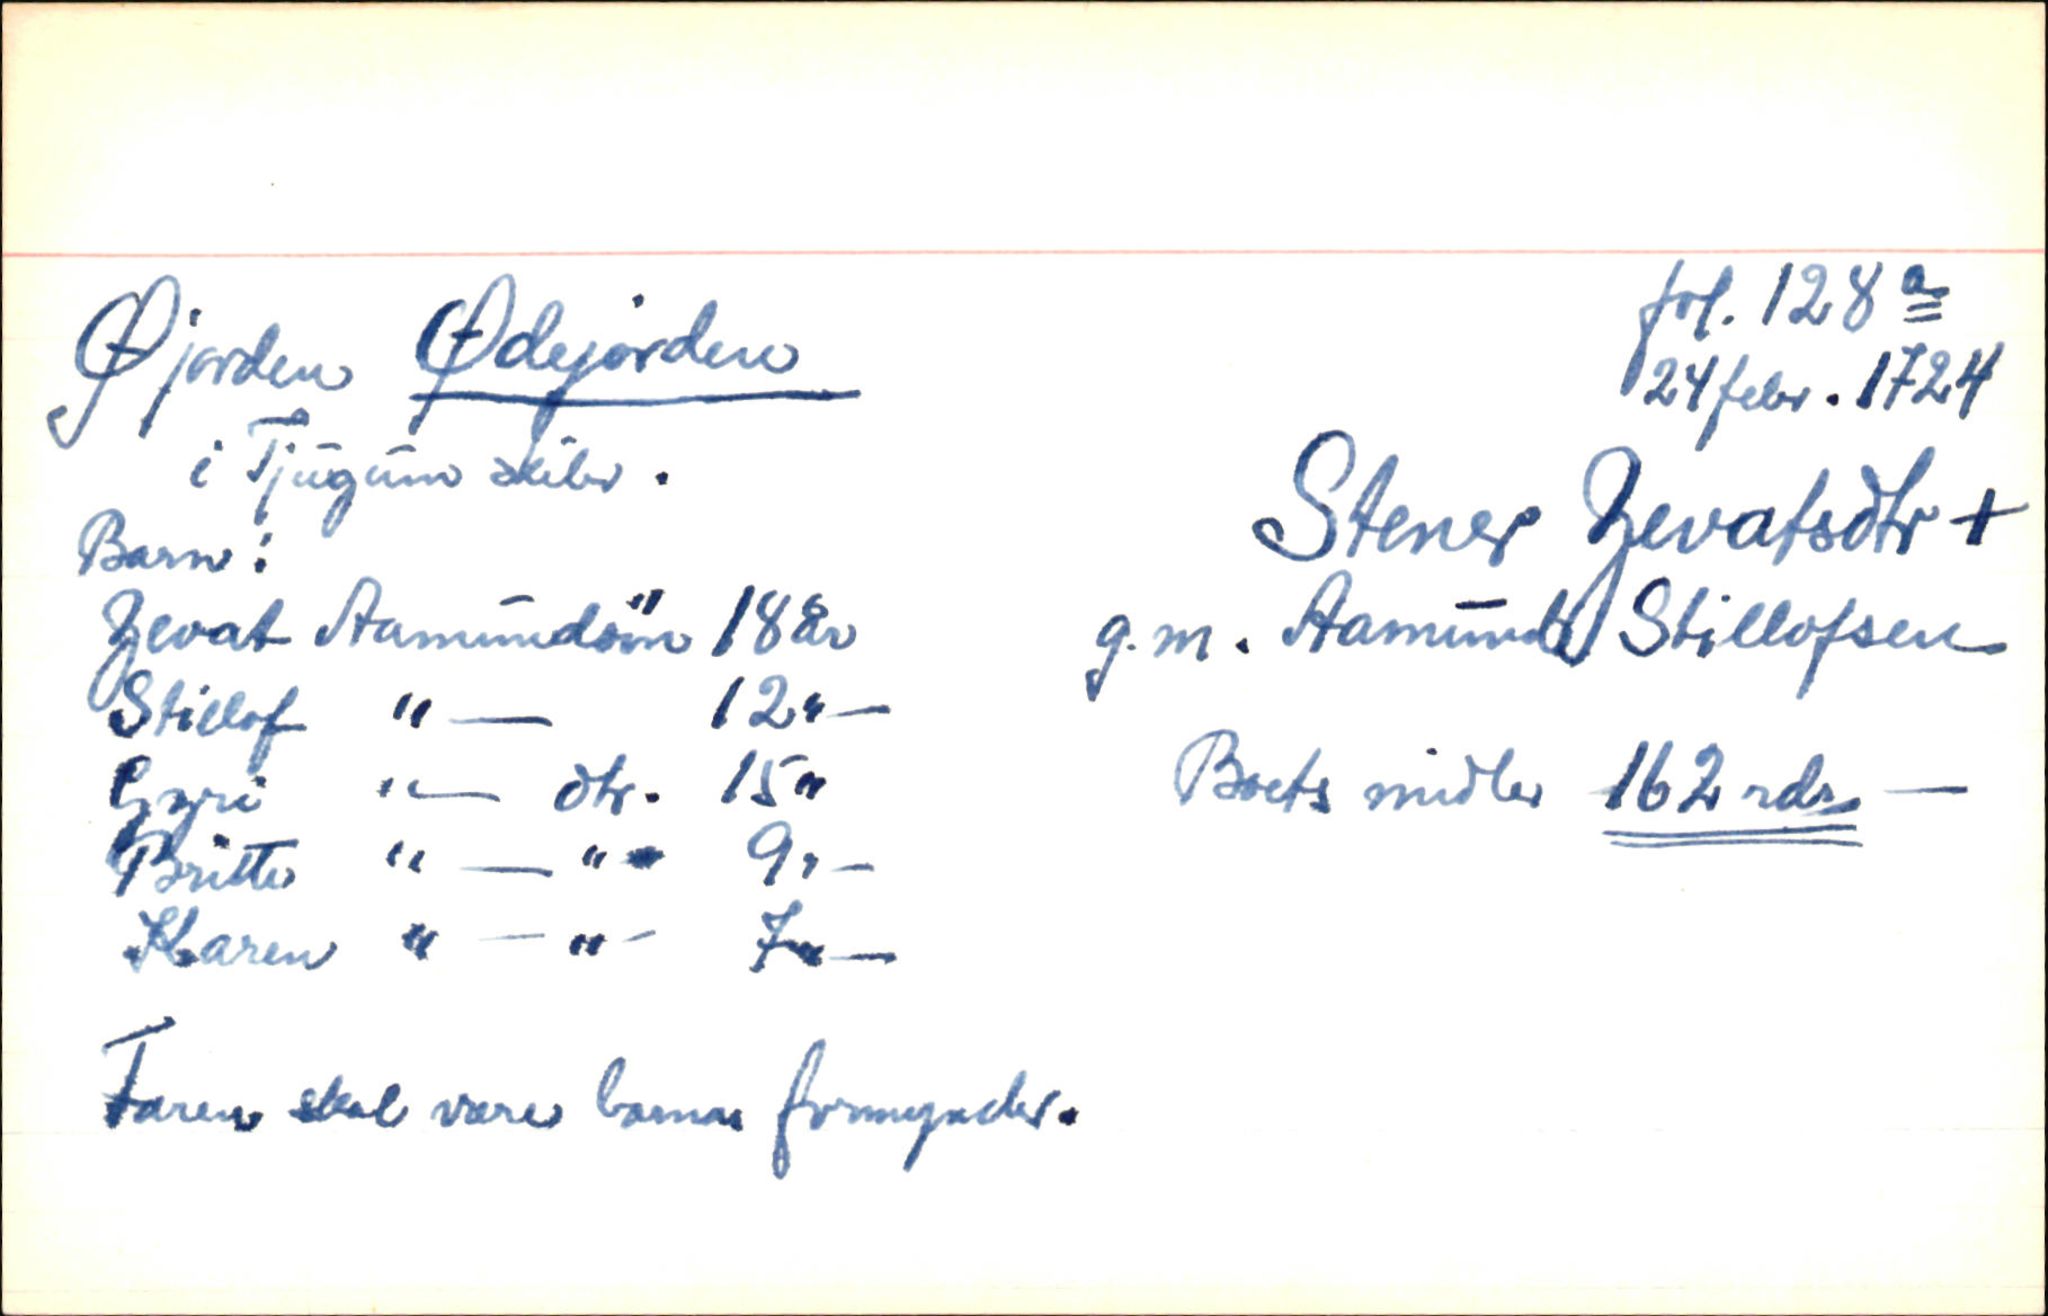 Øjorden Ødejorden
i Tjugum skibr.
Barn:
Zevat Aamundsøn 18 år
Stillof " — 12 " —
Gyri " — dtr. 15 "
Britte " — " 9 " —
Karen " — " — 7 " —
Faren skal være barnas formynder.
fol. 128 a
24 febr. 1724
Stener Zevatsdtr +
g. m. Aamund Stillofsen
Boets midler 162 rdr —